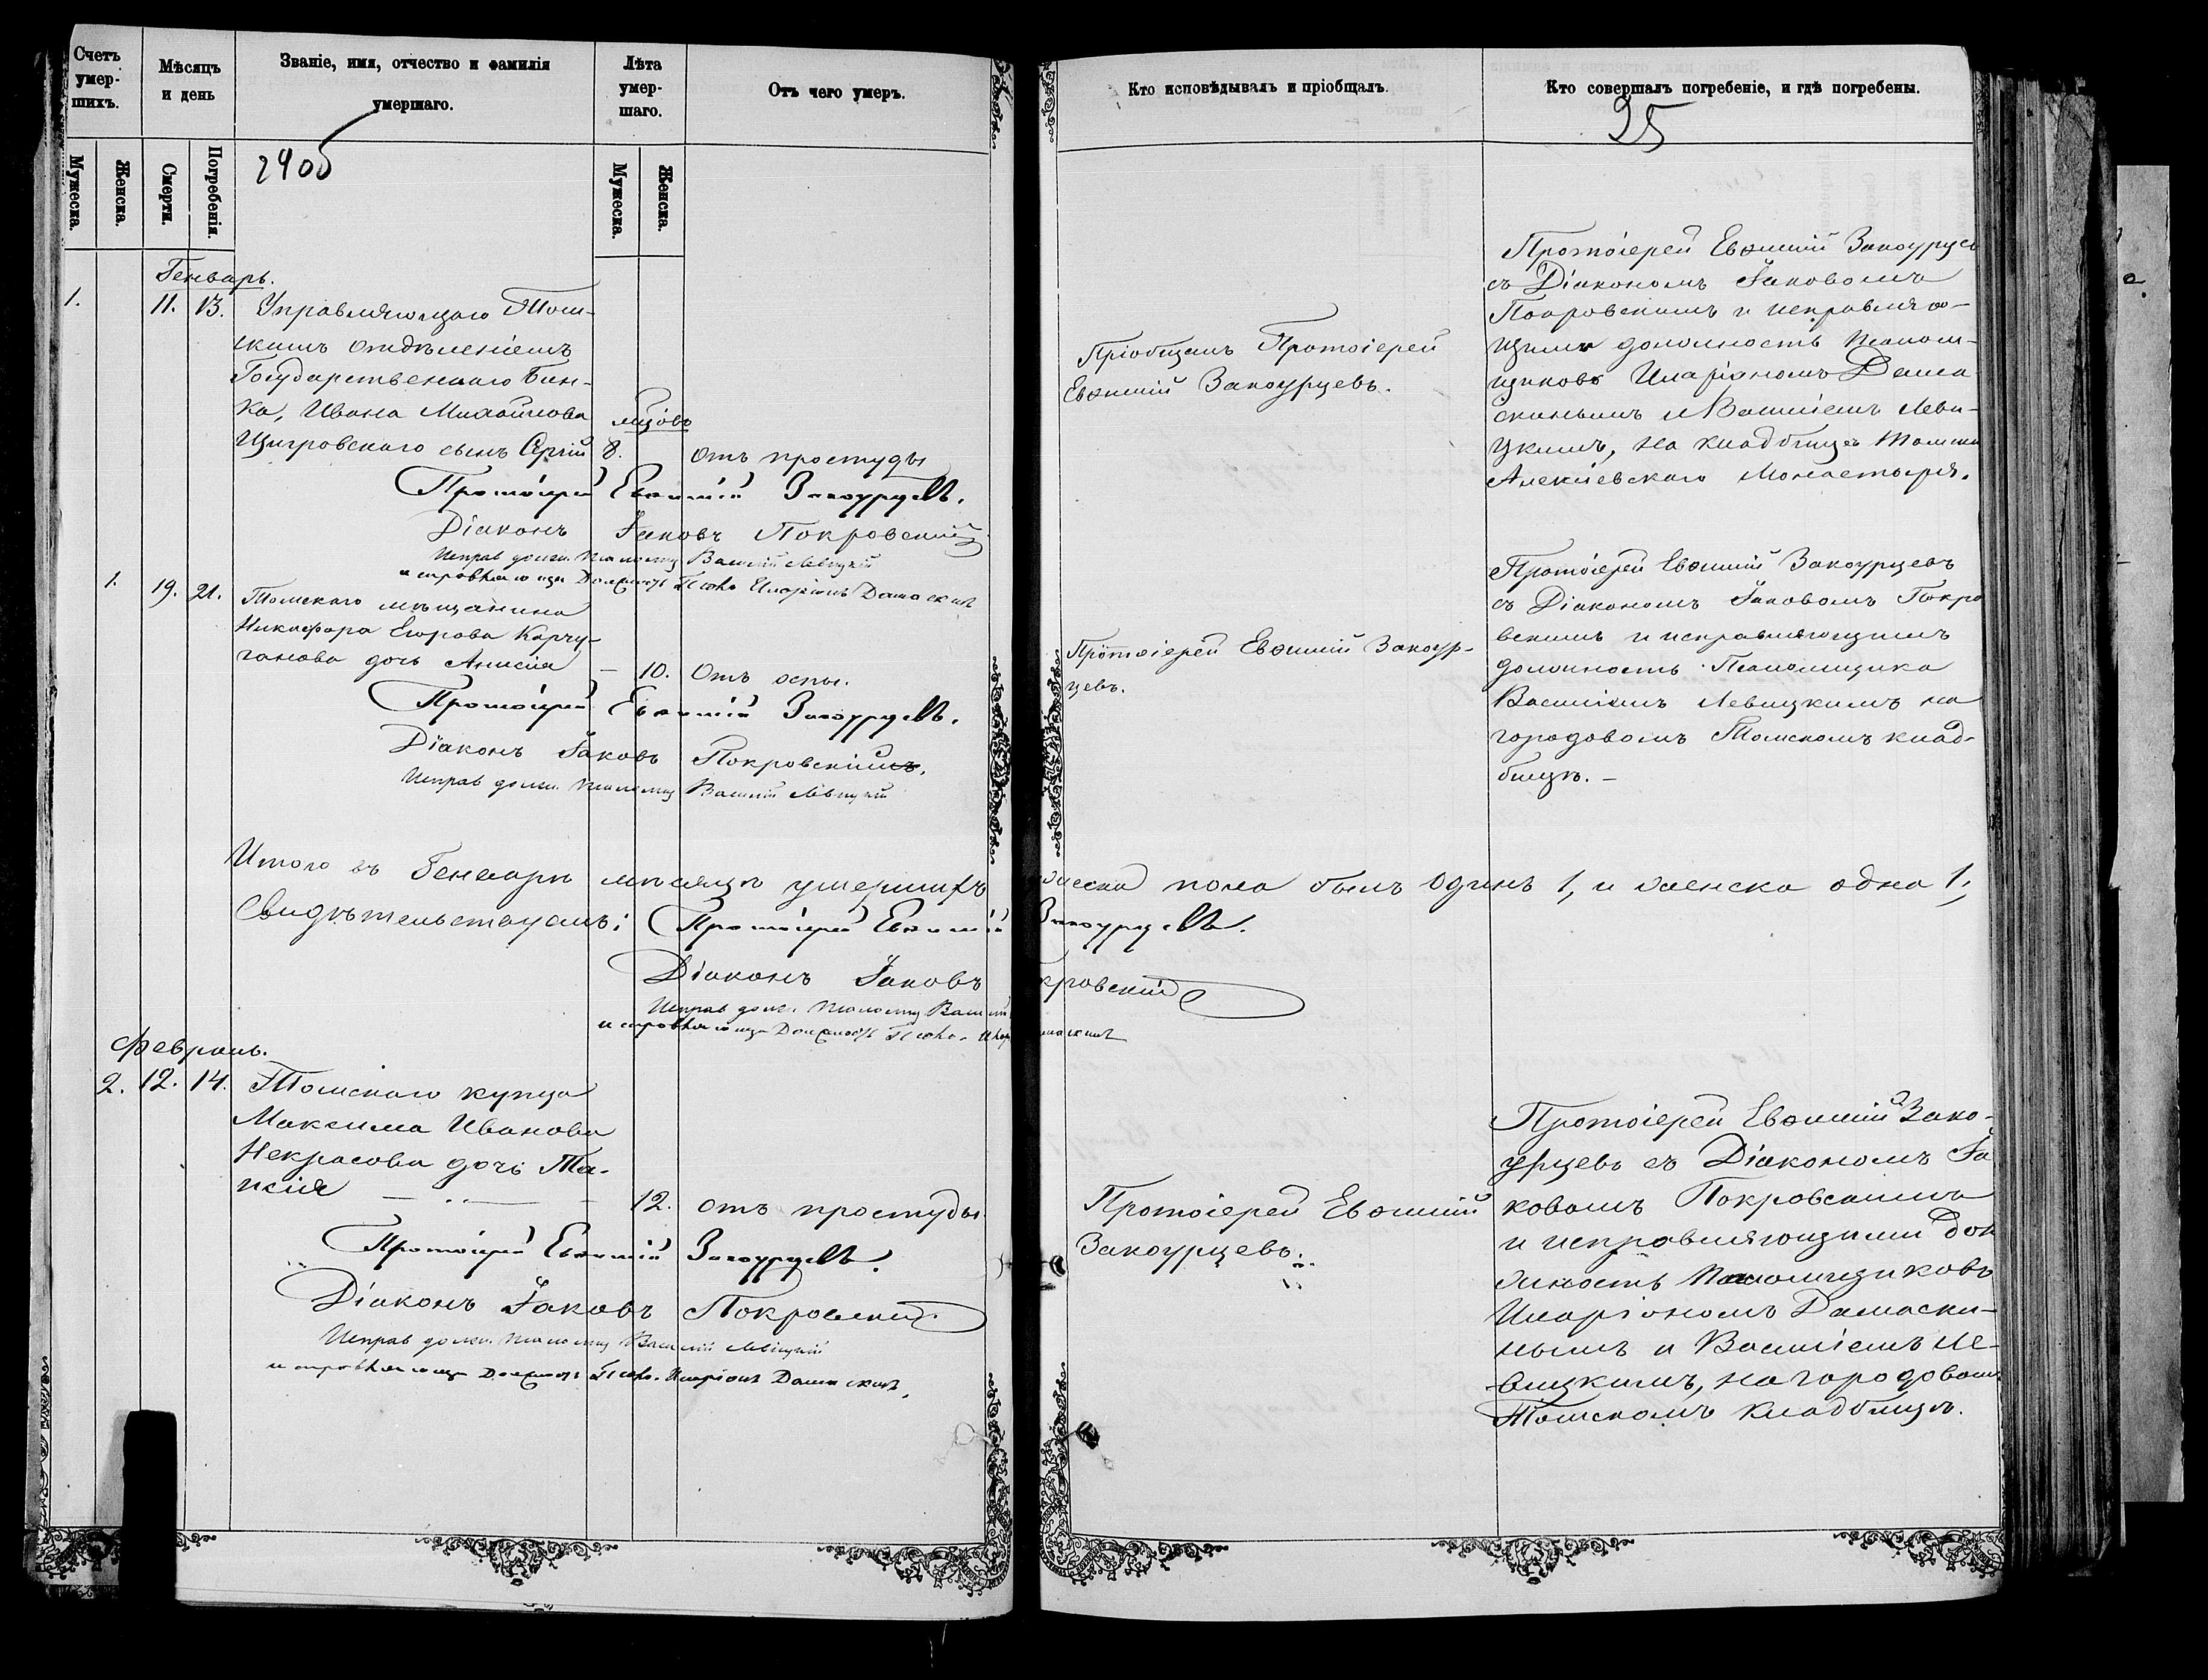 Счетъ
умер-
шихъ.
Мѣсяцъ
и день
Званіе, имя, отчество и фамилія
умершаго.
Лѣта
умер-
шаго.
Отъ чего умеръ.
Кто исповѣдывалъ и пріобщалъ.
Кто совершалъ погребеніе, и гдѣ погребены.
Мужеска.
Женска.
Смерти.
Погребенія.
Мужеска.
Женска.
2405
25
Генварь.
1.
11. 13.
Управляющаго Том-
скимъ отдѣленіемъ
Государственнаго Бан-
ка, Ивана Михайлова
Щигровскаго сынъ Сергій
8.
отъ простуды
Пріобщалъ Протоіерей
Евѳимій Закоурцевъ.
Протоіерей Евѳимій Закоурцев
съ Діакономъ Іаковомъ
Покровскимъ и исправляю-
щими должность Псалом-
щиковъ Иларіономъ Дама
скинымъ и Василіемъ Леви-
цкимъ, на кладбище Томска
Алексіевскаго Монастыря.
Протоіерей Евѳимій Закоурцевъ.
Діаконъ Іаковъ Покровский
Исправ долж. Псаломщ Василій Левицкій
исправляющи Должность Псало Иларіонъ Дамаскинъ
1.
19. 21.
Томскаго мѣщанина
Никифора Егорова Корчу-
ганова дочь Анисія
— 10. Отъ оспы.
Протоіерей Евѳимій Закоур-
цевъ.
Протоіерей Евѳимій Закоурцевъ
съ Діакономъ Іаковомъ Покро
вскимъ и исправляющимъ
должность Псаломщика
Василіемъ Левицкимъ на
городовомъ Томскомъ клад-
бищѣ. —
Протоіерей Евѳимій Закоурцевъ.
Діаконъ Іаковъ Покровскій.
Исправ долж. Псаломщ Василій Левицкій
Итого въ Генварѣ мѣсяцѣ умершихъ
жеска пола былъ Одинъ 1, и женска одна 1;
Свидѣтельствуемъ: Протоіерей Евѳимій
Закоурцевъ.
Діаконъ Іаковъ
кровский
Исправ долж. Псаломщ Васили
исправляющи Должность Псало. Илар
маскинъ
Февраль.
2. 12. 14.
Томскаго купца
Максима Иванова
Некрасова дочь Та-
исія — —
12. отъ простуды
Протоіерей Евѳимій
Закоурцевъ.
Протоіерей Евѳимій Зако-
урцевъ съ Діакономъ Іа
ковомъ Покровскимъ
и исправляющими дол
жность Псаломщиковъ
Иларіономъ Дамаски-
нымъ и Василіемъ Ле-
вицкимъ, на городовом
Томскомъ Кладбищѣ.
Протоіерей Евѳимій Закоурцевъ.
Діаконъ Іаковъ Покровский.
Исправ долж. Псаломщ Василій Левицкій
исправляющи Должность Псало. Иларіонъ Дамаскинъ.